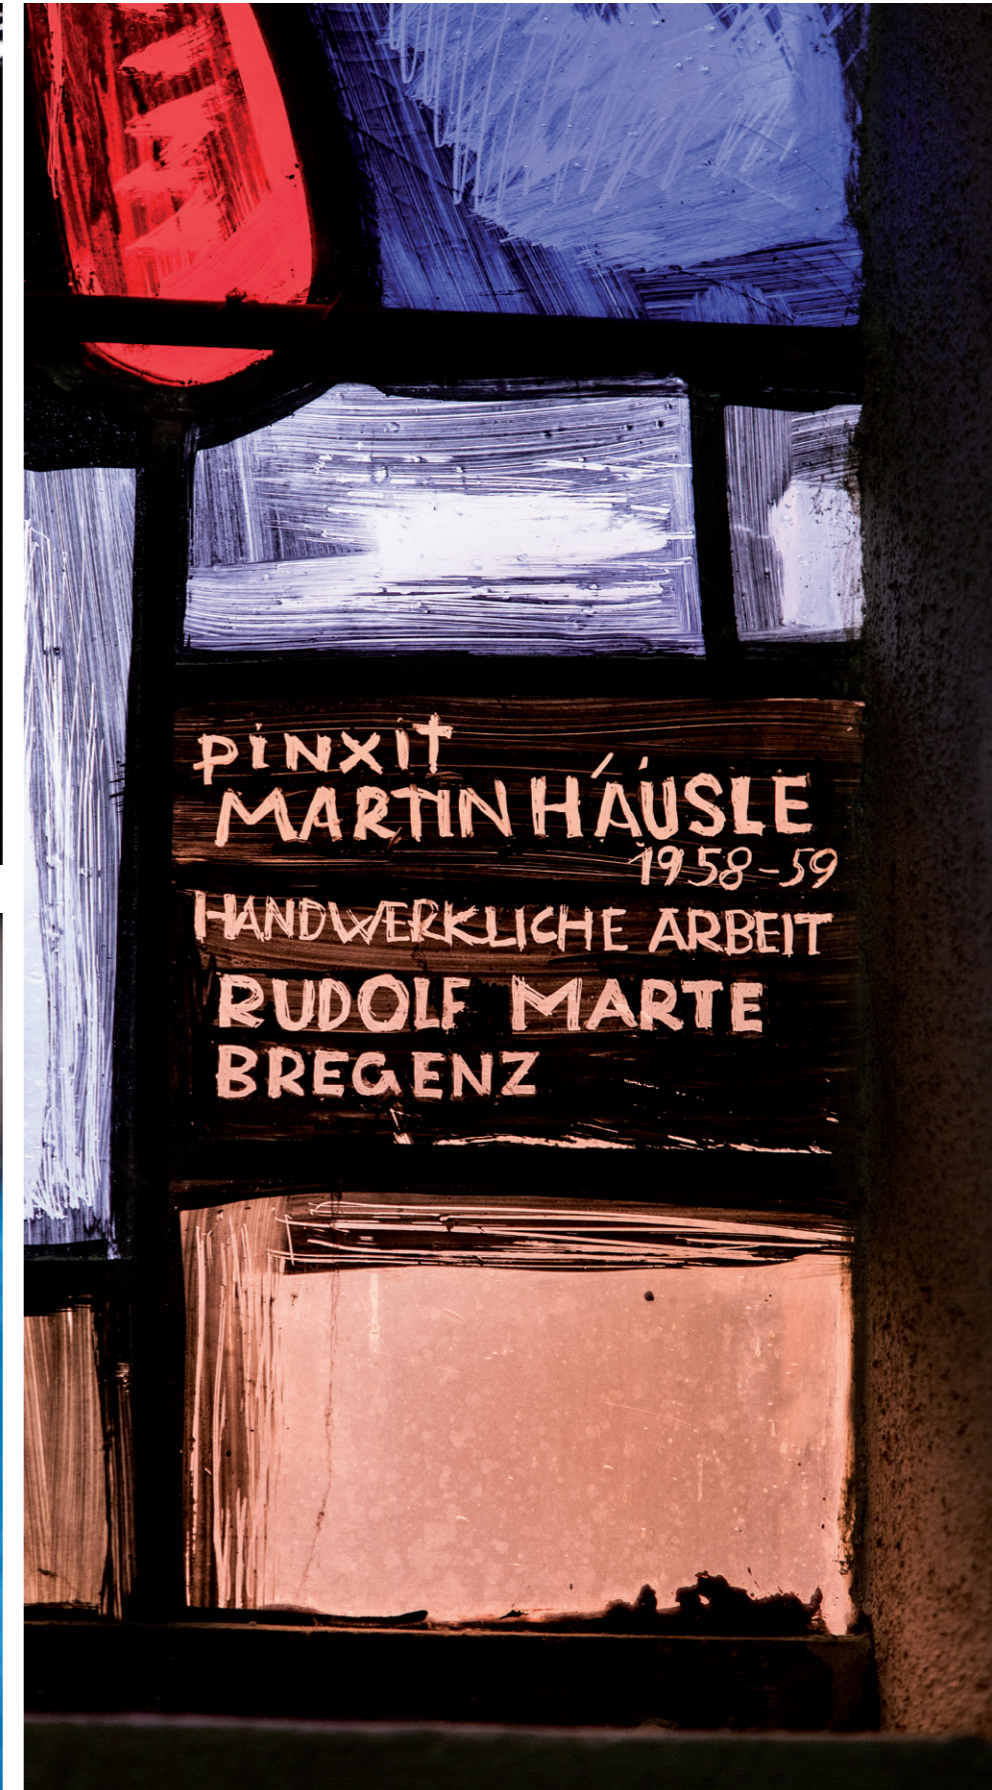 pinxit
MARTIN HÄUSLE
1958-59
HANDWERKLICHE ARBEIT
RUDOLF MARTE
BREGENZ